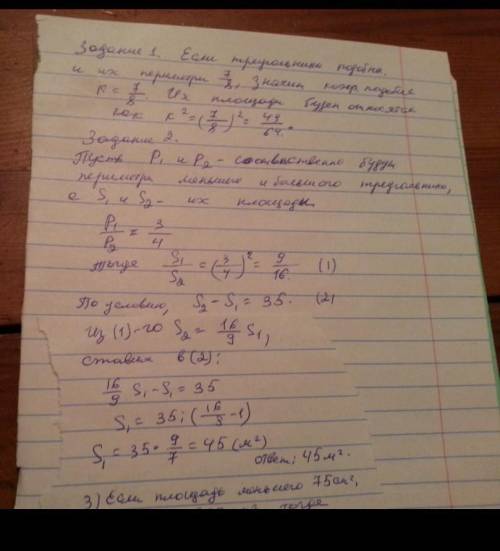 Задание 1. Если треугольники подобны.
и их периметры 7/8, Значит коэф. подобия
к = 7/8. Их площади будет относятся
как к² = (7/8)² = 49/64.
Задание 2.
Пусть P₁ и P₂ - соответственно будут
периметра меньшего и большого треугольника,
а S₁ и S₂ - их площады
P₁/P₂ = 3/4
тогда S₁/S₂ = (3/4)² = 9/16. (1)
По условию, S₂ - S₁ = 35. (2)
из (1)-го S₂ = 16/9 S₁,
ставим в (2):
16/9 S₁ - S₁ = 35
S₁ = 35 : (16/9 - 1)
S₁ = 35 * 9/7 = 45 (м²)
ответ: 45 м².
3) Если площадь меньшего 75 см²,
тогда